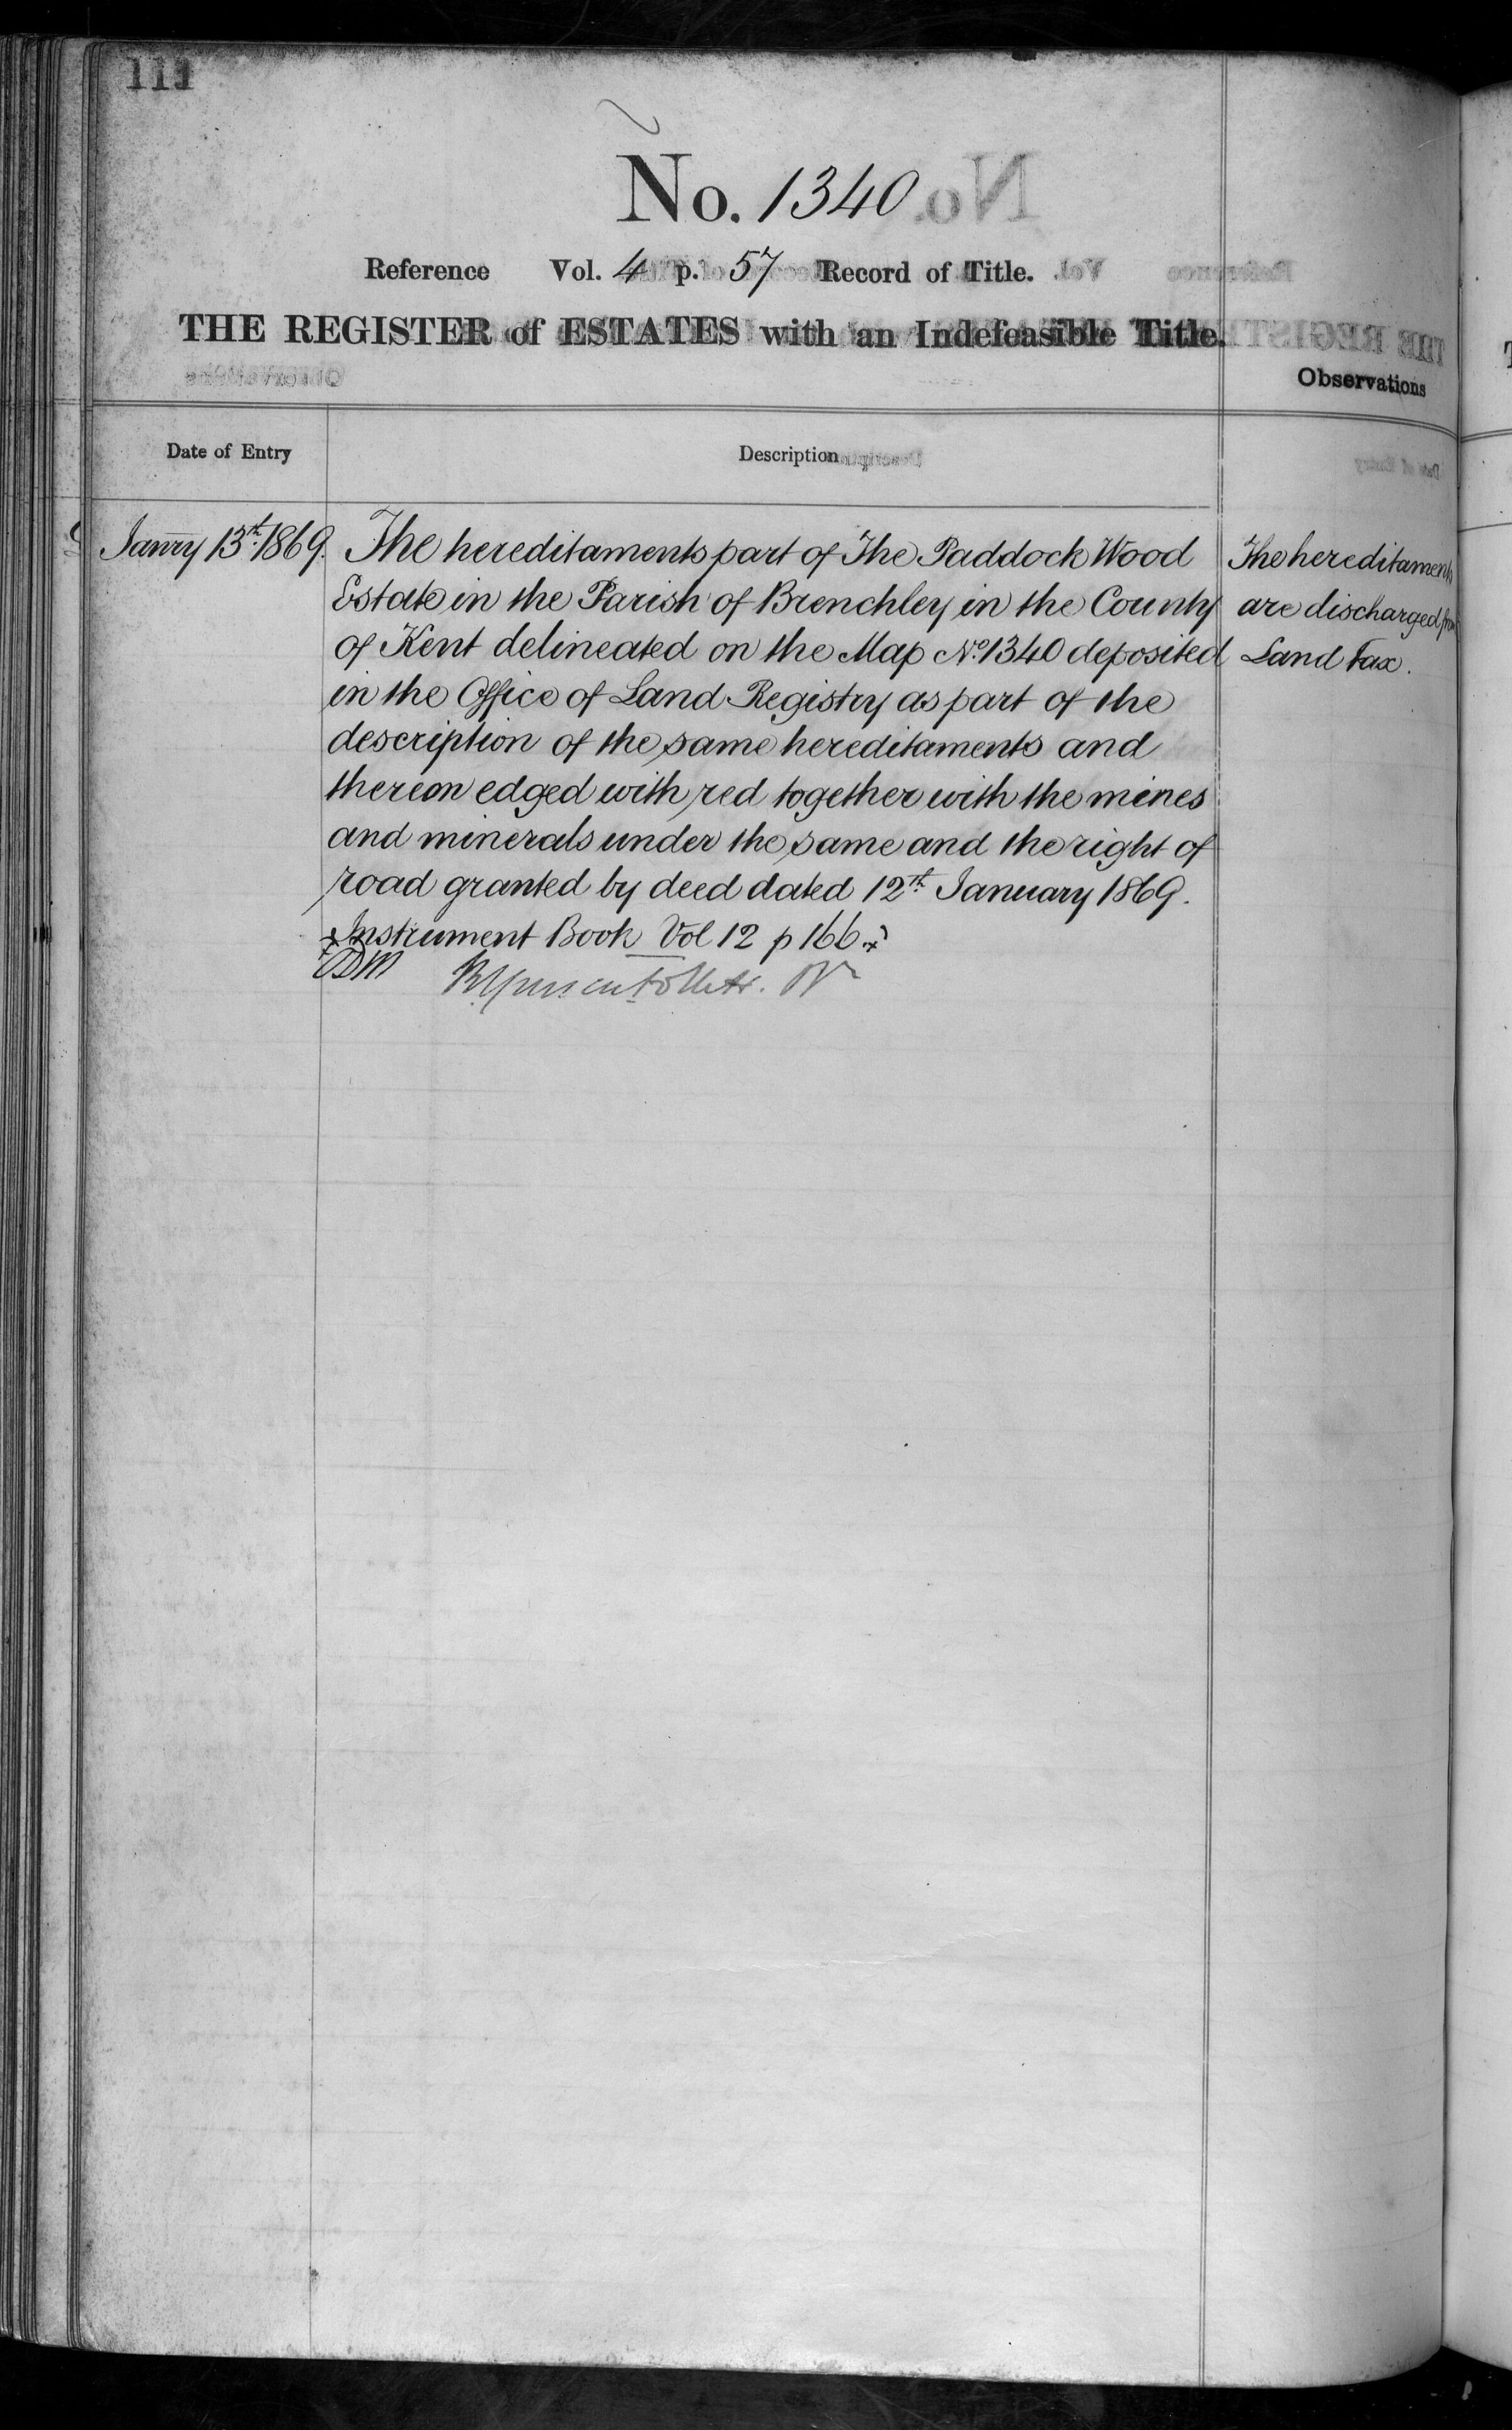 111
No. 1340
Reference Vol. 4 p. 57 Record of Title.
THE REGISTER of ESTATES with an Indefeasible Title.
Observations
Date of Entry Description
Janry 13th. 1869. The hereditaments part of The Paddock Wood
Estate in the Parish of Brenchley in the County
of Kent delineated on the Map No. 1340 deposited
in the Office of Land Registry as part of the
description of the same hereditaments and
thereon edged with red together with the mines
and minerals under the same and the right of
road granted by deed dated 12th. January 1869.
Instrument Book Vol 12 p 166
The hereditaments
are discharged from
Land Tax.